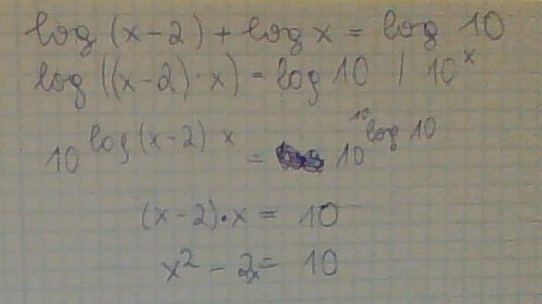 log (x-2) + log x = log 10
log ((x-2)·x) = log 10 / 10^x
10^{log (x-2) x} = 10^{10 log 10}
(x-2)·x = 10
x² - 2x = 10